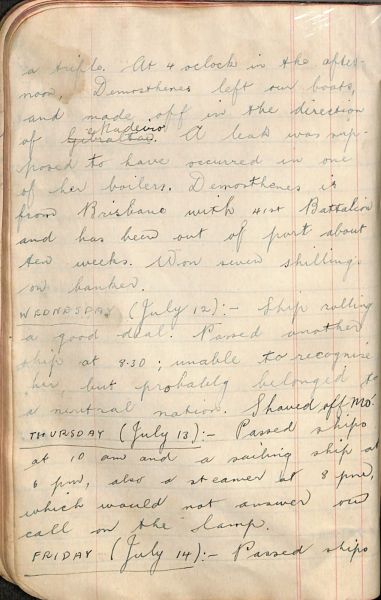 a trifle. At 4 oclock in the after-
noon, Demosthenes left our boats,
and made off in the direction
of Gibraltar. Madeira. A leak was sup-
posed to have occurred in one
of her boilers. Demosthenes is
from Brisbane with 41st Battalion
and has been out of port about
ten weeks. Won seven shillings
on banker.
WEDNESDAY (July 12):- Ship rolling
a good deal. Passed another
ship at 8.30; unable to recognise
her, but probably belonged to
a neutral nation. Shaved off Mo.
THURSDAY (July 13):- Passed ships
at 10 am and a sailing ship at
6 pm, also a steamer at 8 pm,
which would not answer our
call on the lamp.
FRIDAY (July 14):- Passed ships